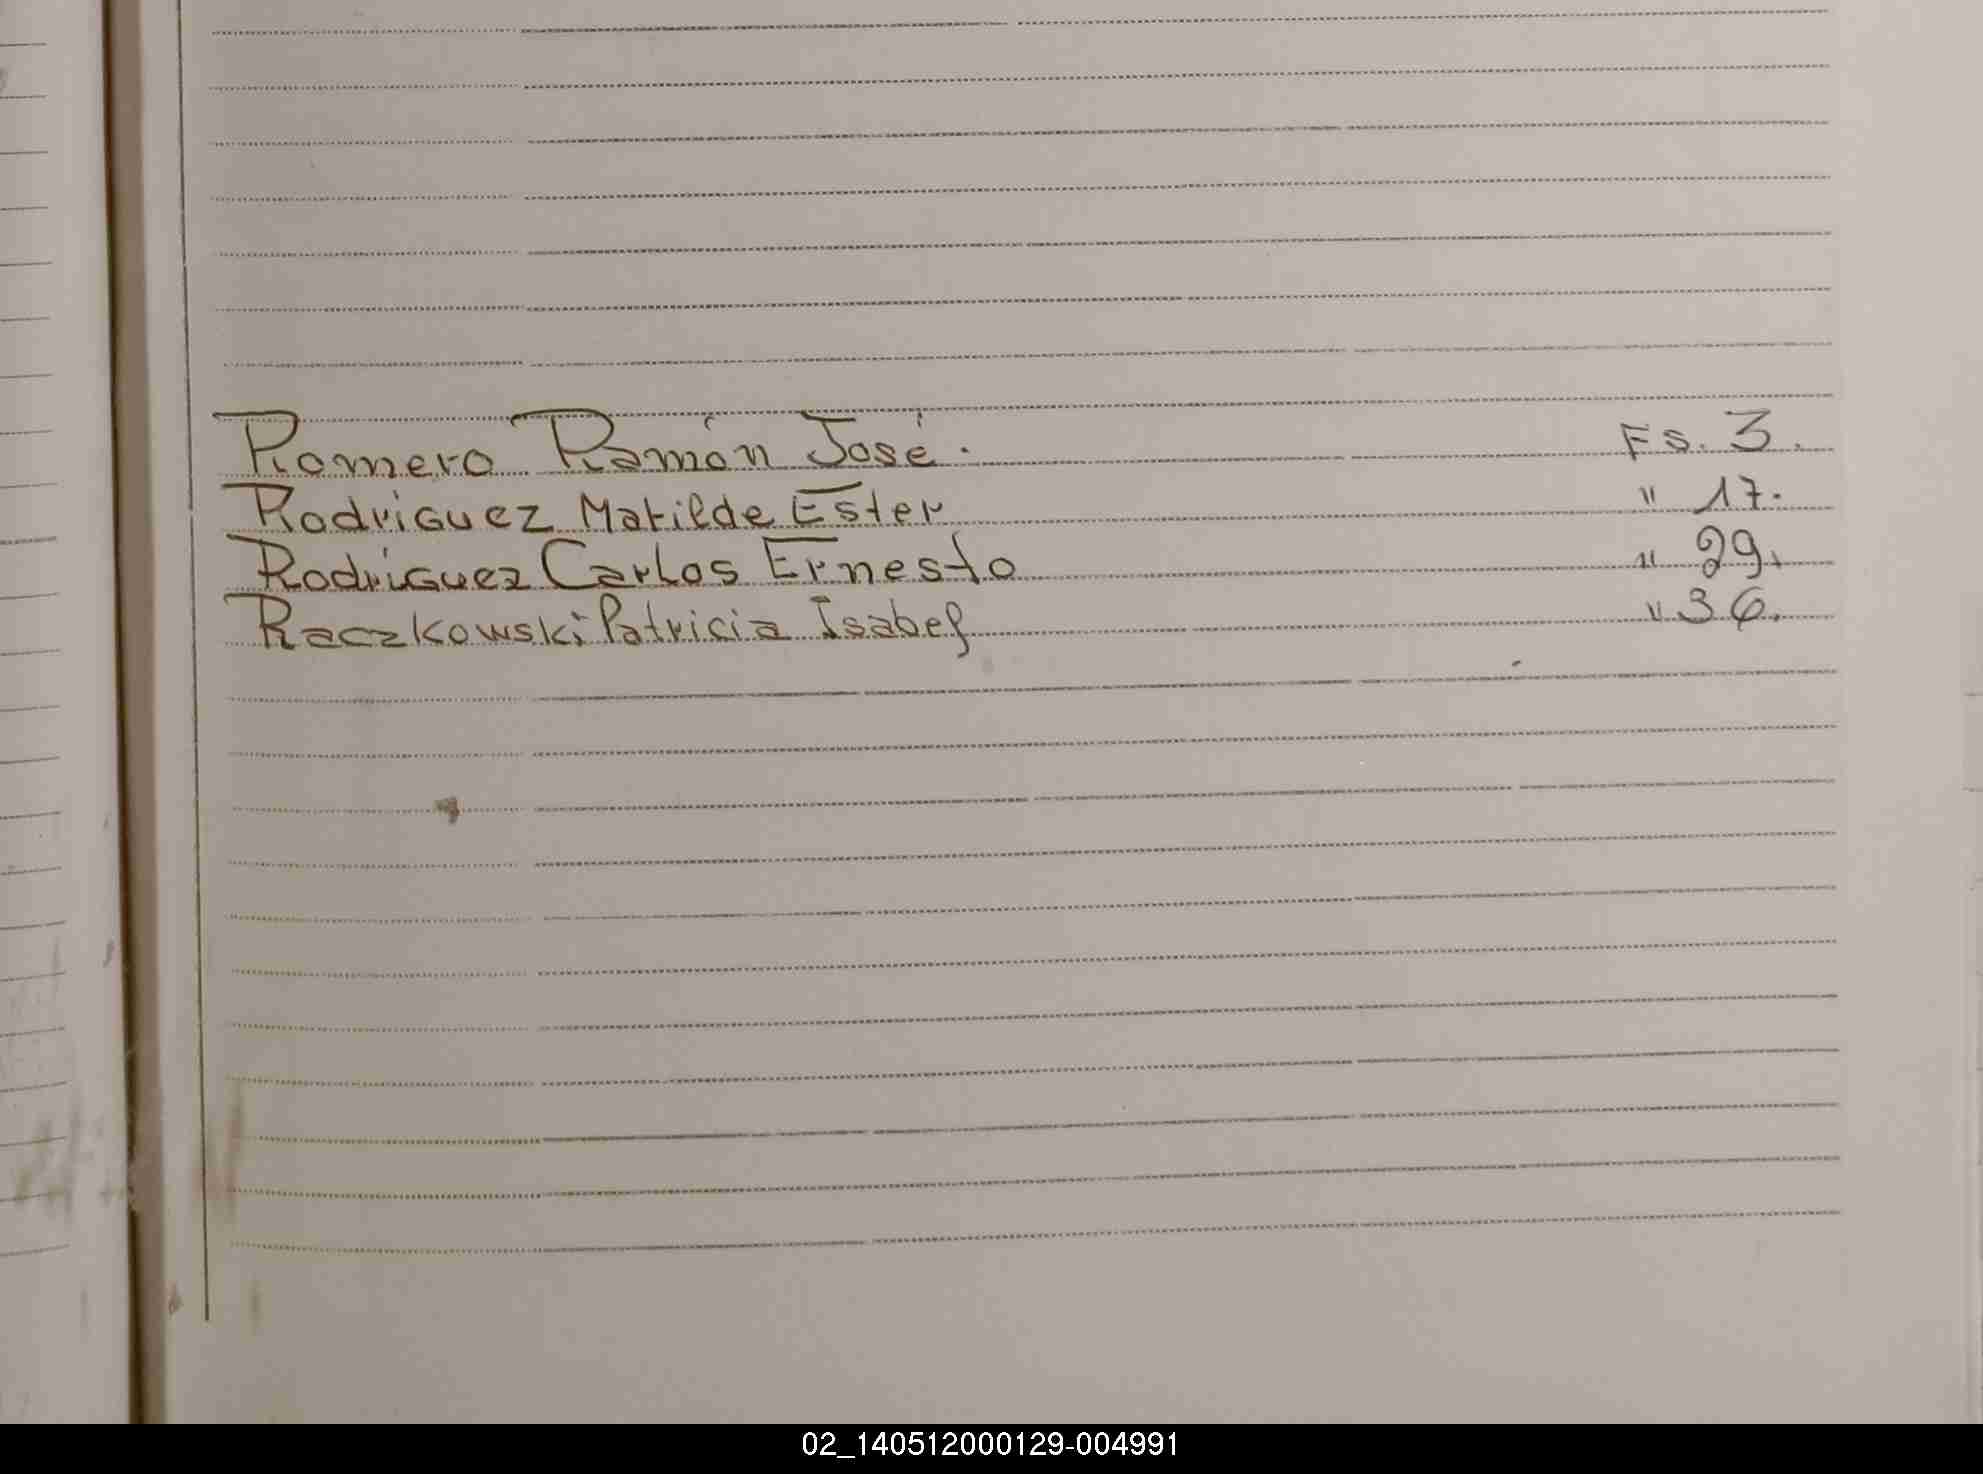 Romero Ramón José. Fs. 3.
Rodriguez Matilde Ester " 17.
Rodriguez Carlos Ernesto " 29.
Raczkowski Patricia Isabel " 36.
02_140512000129-004991